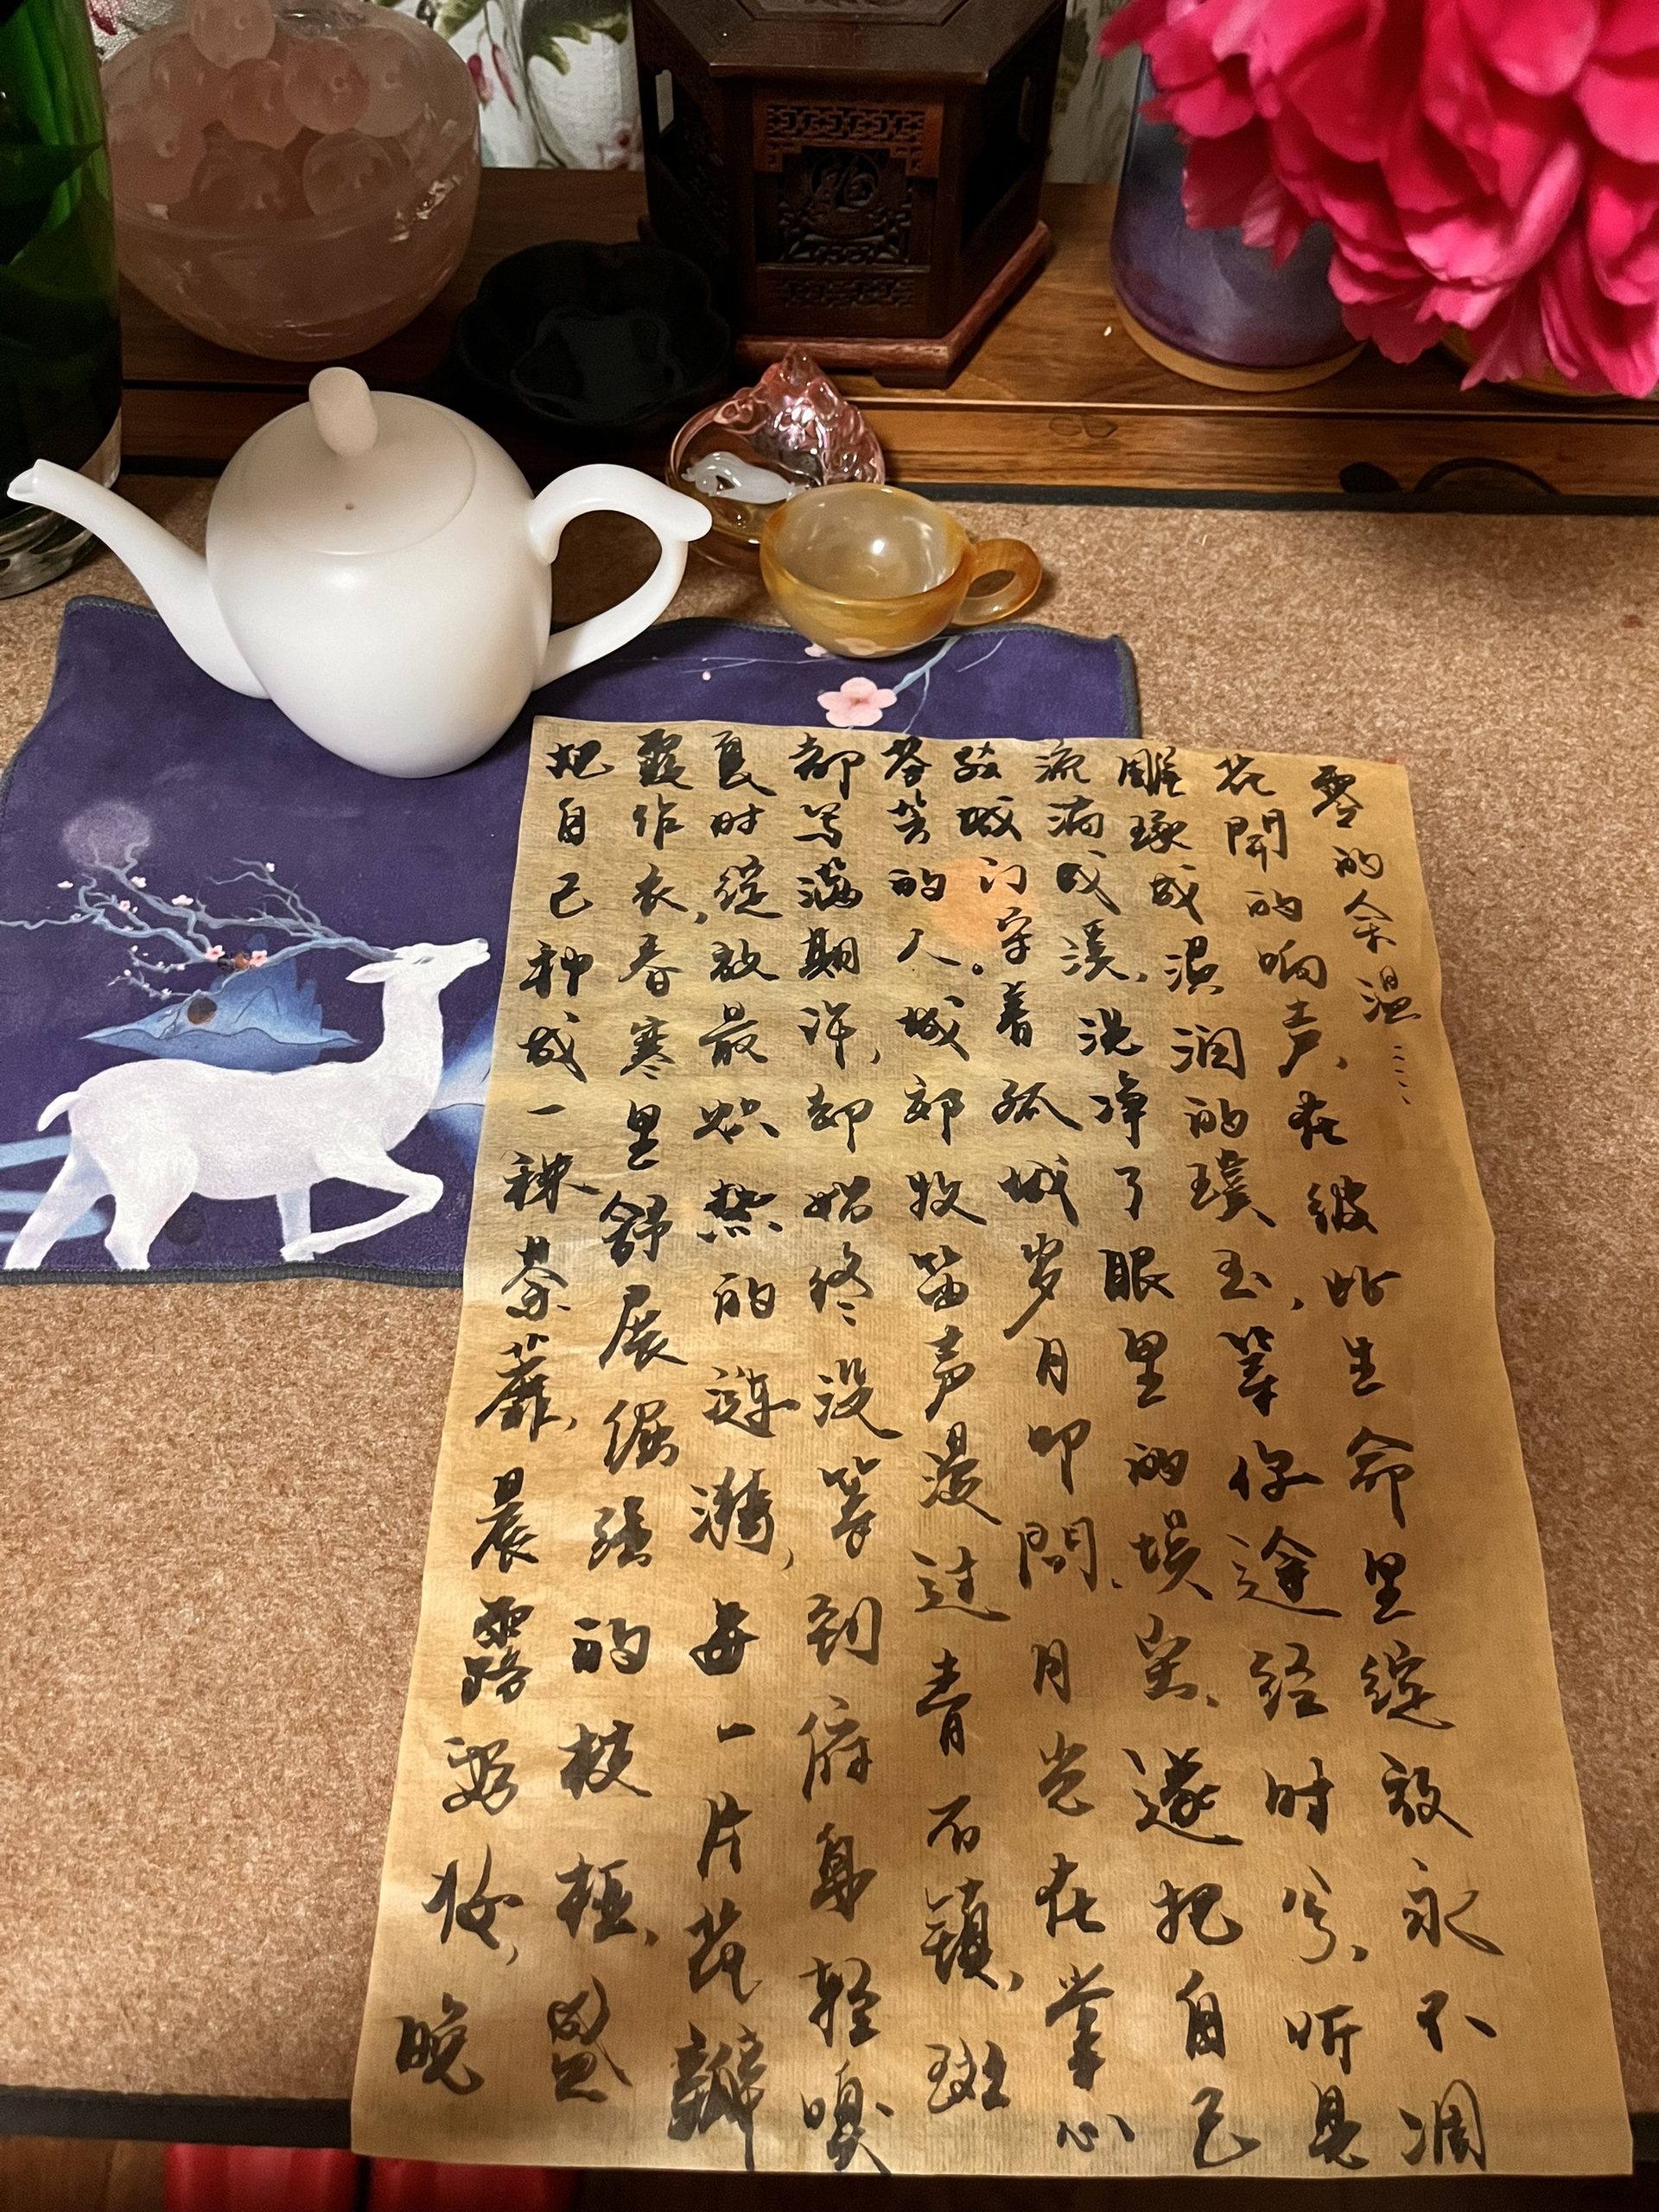 把自己种成一株荼蘼,晨露妆,晚
霞作衣,春寒里舒展倔强的枝桠,盛
夏时绽放最炽热的涟漪,每一片花瓣
都写满期许,却始终没等到俯身轻嗅
芬芳的人。城郊牧笛声漫过青石镇,斑
驳城门守着孤城岁月叩問,月光在掌心
流淌成溪,洗净了眼里的埃尘,遂把自己
雕琢成温润的璞玉,等你途经时分,听見
花開的响声,在彼此生命里绽放永不凋
零的余温……